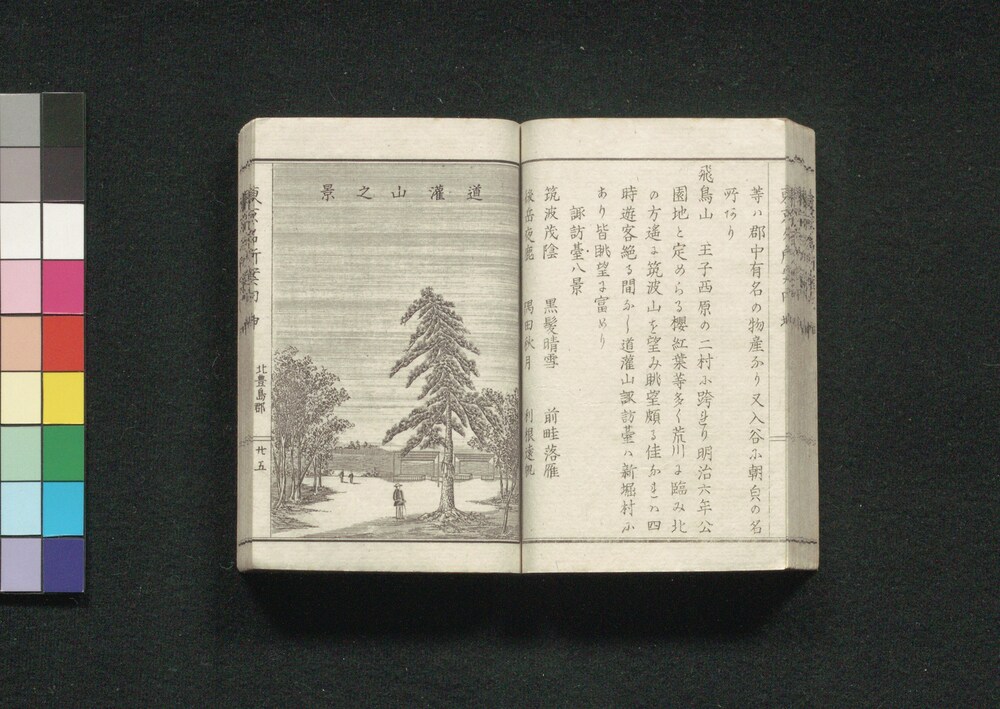 等ハ郡中有名の物産なり又入谷ふ朝㒵の名
所あり
飛鳥山 王子西原の二村ふ跨れり明治六年公
園地と定めらる櫻紅葉等多く荒川に臨み北
の方遙に筑波山を望み眺望頗る佳なれハ四
時遊客絶る間なし道灌山諏訪臺ハ新堀村ふ
あり皆眺望に富めり
諏訪臺八景
筑波茂陰 黒髪晴雪 前畦落雁
隅田秋月 利根遠帆
道灌山之景
東京名所案内
北豊島郡
廿五